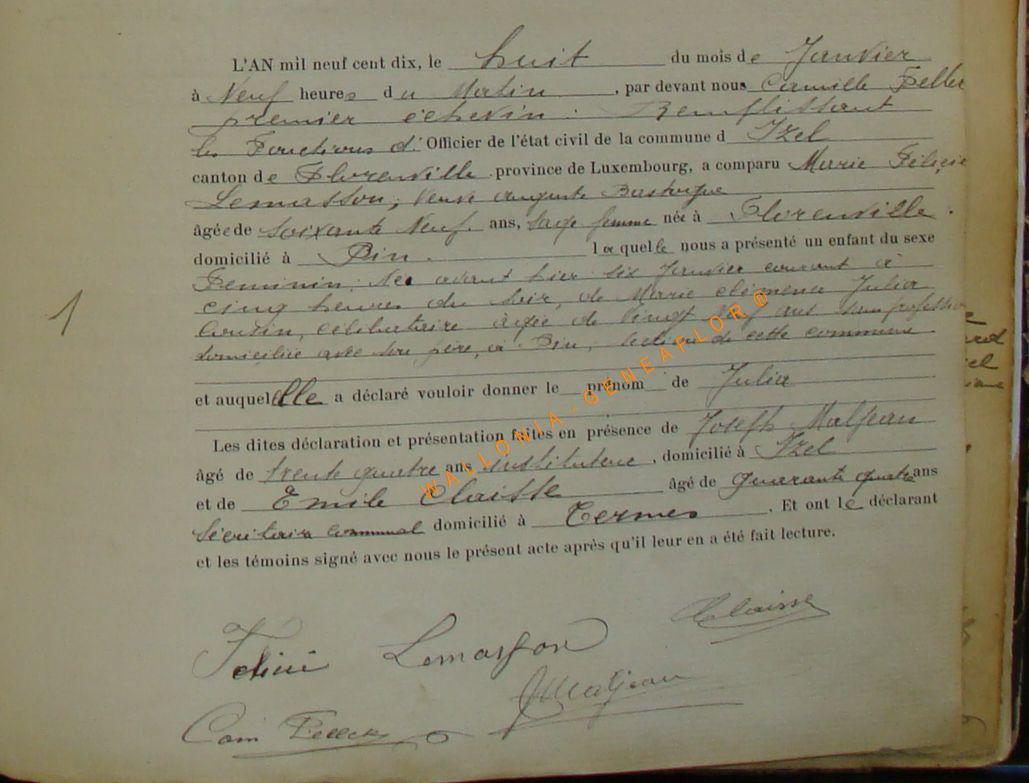 L'AN mil neuf cent dix, le huit du mois de Janvier
à Neuf heures du Matin, par devant nous Camille Feller
premier échevin. Remplissant
les Fonctions d'Officier de l'état civil de la commune d Izel
canton de Florenville, province de Luxembourg, a comparu Marie Félicie
Lemasson, veuve auguste Bastogne
âgée de soixante Neuf ans, sage femme née à Florenville.
domicilié à Pin. laquelle nous a présenté un enfant du sexe
Feminin, Née avant hier six Janvier courant à
cinq heures du soir, de Marie clémence Julia
célibataire âgée de Vingt Neuf ans sans profession
domiciliée avec son père, à Pin, section de cette commune
et auquelelle a déclaré vouloir donner le prénom de Julia
Les dites déclaration et présentation faites en présence de Joseph Maljean
âgé de trente quatre ans instituteur, domicilié à Izel
et de Emile Claisse âgé de quarante quatre ans
Secrétaire communal domicilié à Termes. Et ont le déclarant
et les témoins signé avec nous le présent acte après qu'il leur en a été fait lecture.
1
WALLONIA-GENEAFLOR®
Claisse
Félicie Lemasson
JMaljean
Cam Feller